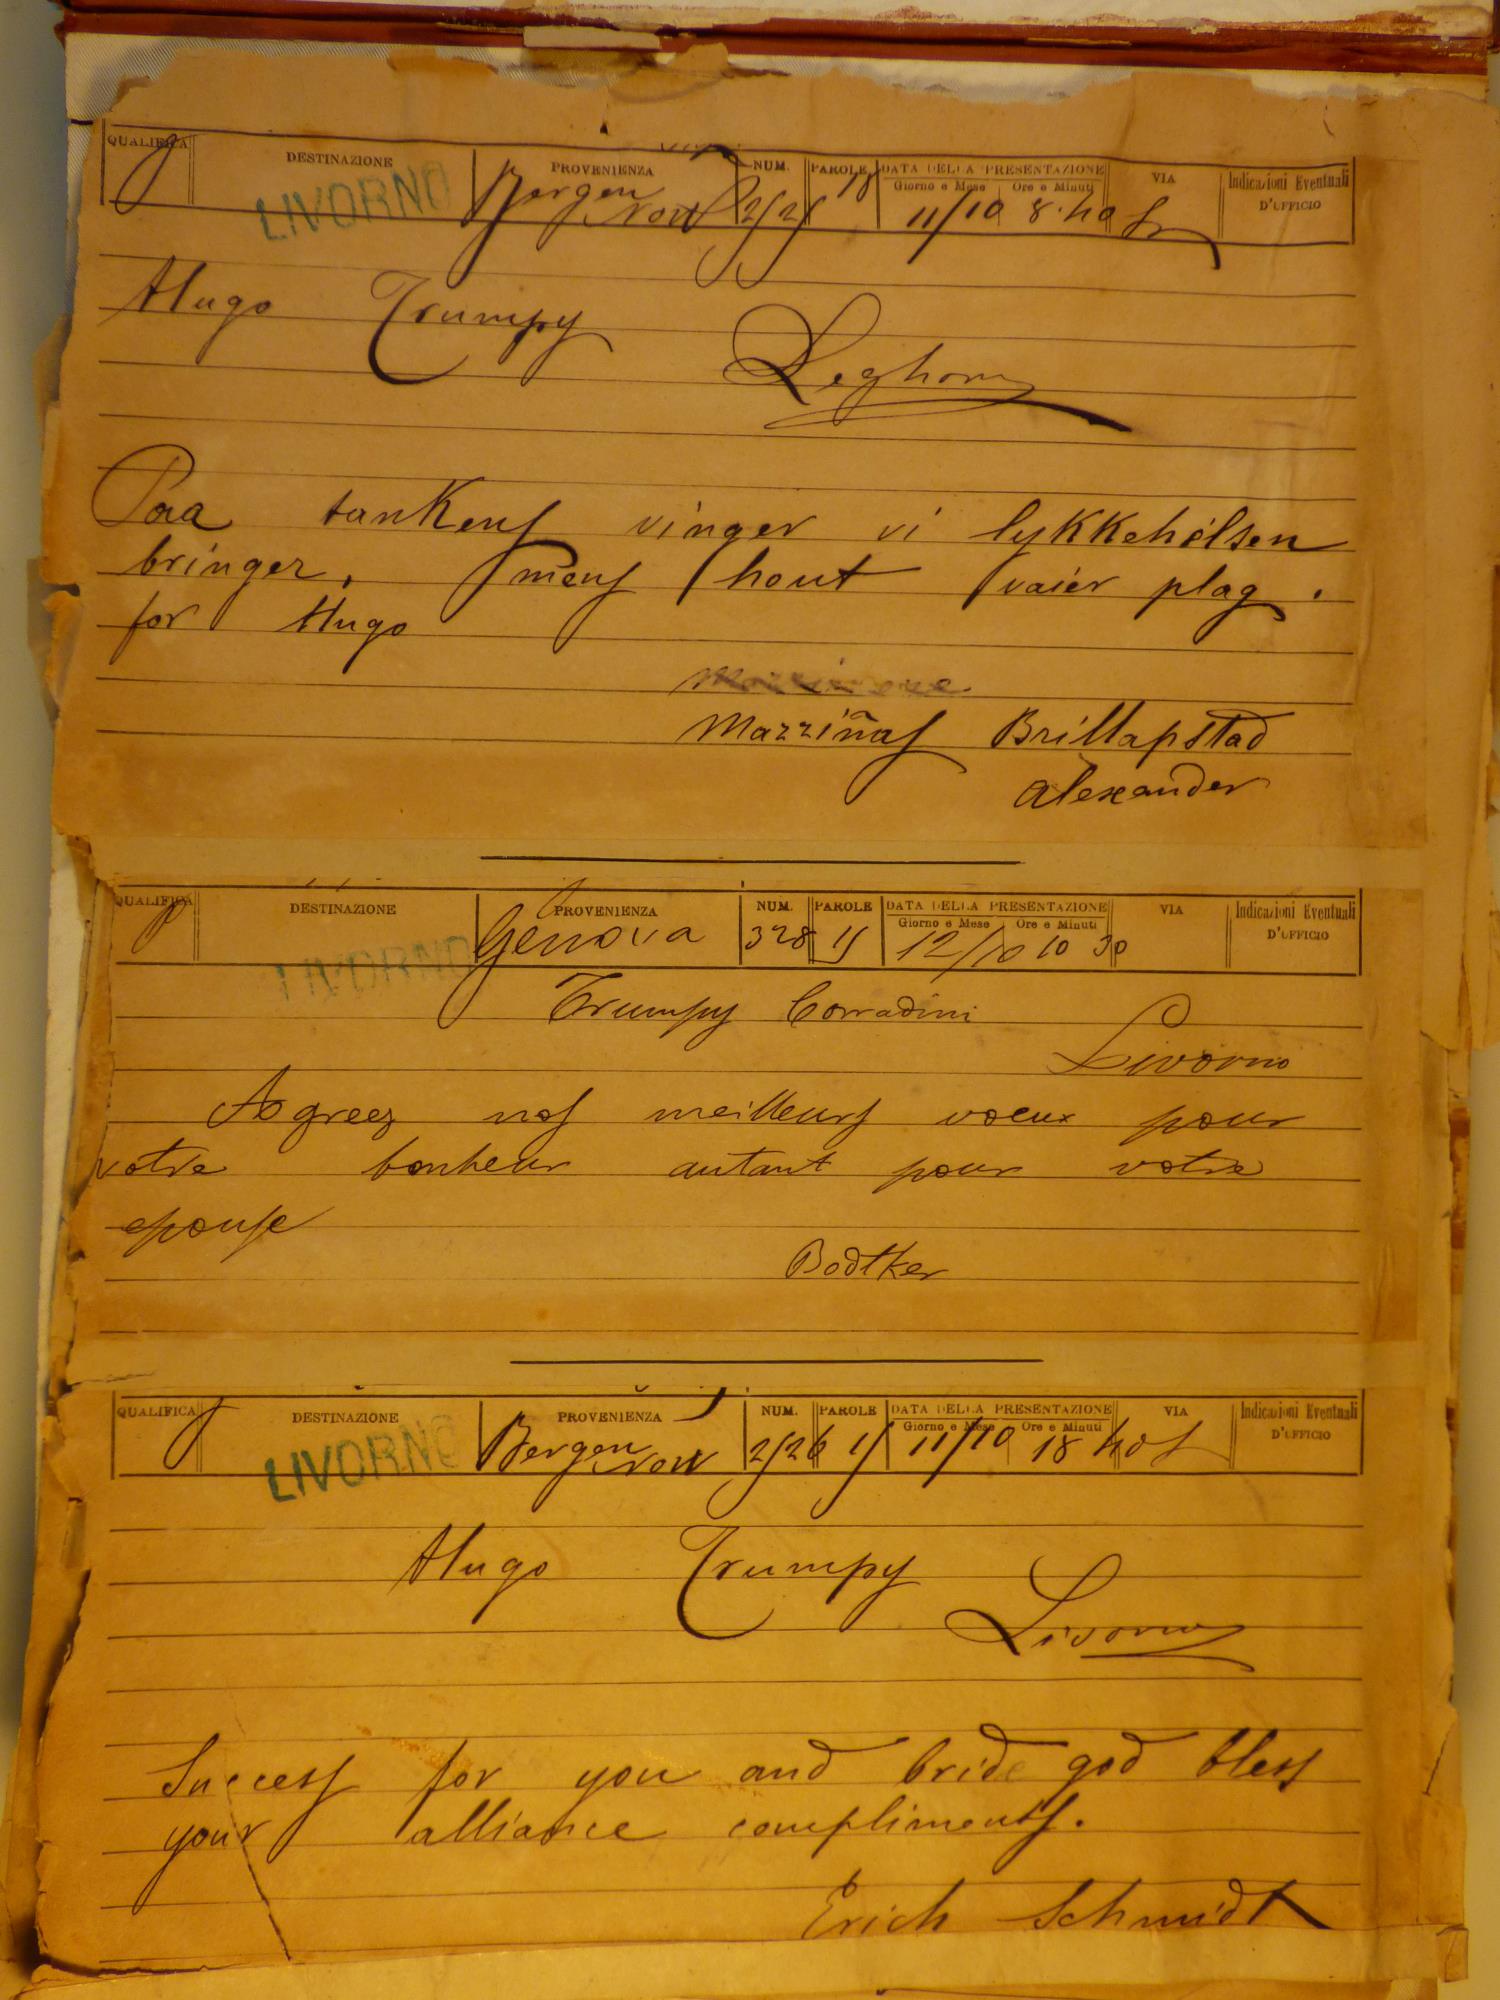 QUALIFICA DESTINAZIONE PROVENIENZA NUM. PAROLE DATA DELLA PRESENTAZIONE VIA Indicazioni Eventuali
Giorno e Mese Ore e Minuti D'UFFICIO
LIVORNO Bergen 18 11/10 8.40
Hugo Trumpy
Leghorn
Paa tankens vinger vi lykkehilsen
bringer, mens hout vaier plag.
for Hugo
Mazziñas Brillapstad
Alexander
QUALIFICA DESTINAZIONE PROVENIENZA NUM. PAROLE DATA DELLA PRESENTAZIONE VIA Indicazioni Eventuali
Giorno e Mese Ore e Minuti D'UFFICIO
LIVORNO Genova 328 15 12/10 10 30
Trumpy Corradini
Livorno
Agreez nos meilleurs voeux pour
votre bonheur autant pour votre
epouse
Bodtker
QUALIFICA DESTINAZIONE PROVENIENZA NUM. PAROLE DATA DELLA PRESENTAZIONE VIA Indicazioni Eventuali
Giorno e Mese Ore e Minuti D'UFFICIO
LIVORNO Bergen 2526 15 11/10 18 40
Hugo Trumpy
Livorno
Success for you and bride god bless
your alliance compliments.
Erich Schmidt